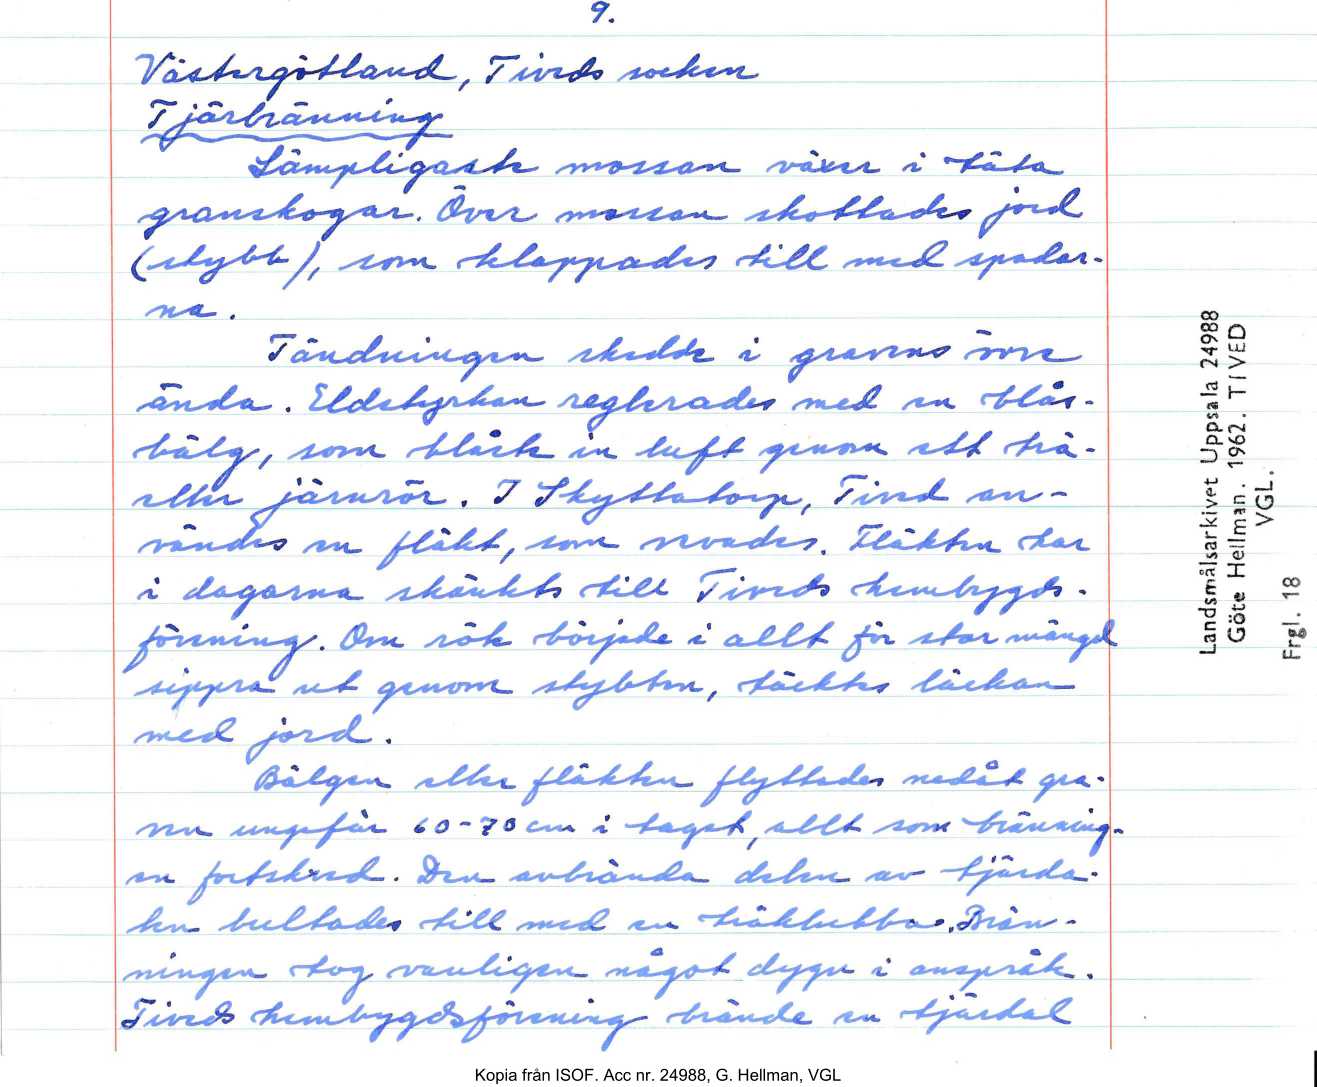 9.
Västergötland, Tiveds socken
Tjärbränning
Lämpligaste mossan växer i täta
granskogar. Över mossan skottades jord
(stybb), som klappades till med spadar-
na.
Tändningen skedde i gravens övre
ända. Eldstyrkan reglerades med en blås-
bälg, som blåste in luft genom ett trä-
eller järnrör. I Skyttatorp, Tived an-
vändes en fläkt, som vevades. Fläkten har
i dagarna skänkts till Tiveds hembygds-
förening. Om rök började i allt för stor mängd
sippra ut genom stybben, täcktes läckan
med jord.
Bälgen eller fläkten flyttades nedåt gra-
ven ungefär 60-70 cm i taget, allt som bränning-
en fortskred. Den avbrända delen av tjärda-
len bultades till med en träklubba. Brän-
ningen tog vanligen något dygn i anspråk.
Tiveds hembygdsförening brände en tjärdal
Landsmålsarkivet Uppsala 24988
Göte Hellman. 1962. TIVED
VGL.
Frgl. 18
Kopia från ISOF. Acc nr. 24988, G. Hellman, VGL